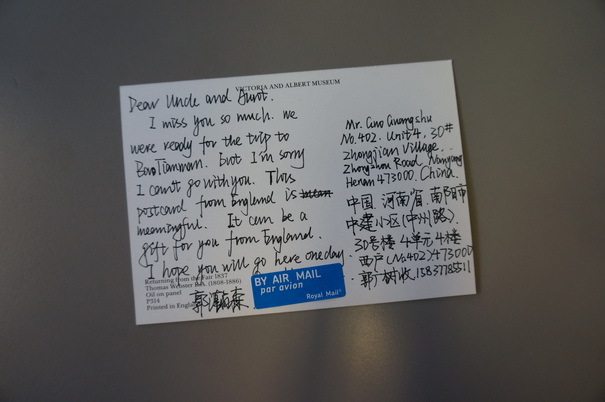 VICTORIA AND ALBERT MUSEUM
Dear Uncle and Aunt.
I miss you so much. We
were ready for the trip to
BaoTianman. But I'm sorry
I can't go with you. This
postcard from England is
meaningful. It can be a
gift for you from England.
I hope you will go here one day.
Returning from the Fair 1837
Thomas Webster R.A. (1808-1886)
Oil on panel
Printed in England
BY AIR MAIL
par avion
Royal Mail
Mr. Guo Guangshu
No.402. Unit 4, 30#
Zhongjian Village.
Zhongzhou Road, Nanyang
Henan 473000. China.
中国.河南省.南阳市
中建小区(中州路).
30号楼 4单元 4楼
西户(No.402) 473000
郭广树收.15837785511